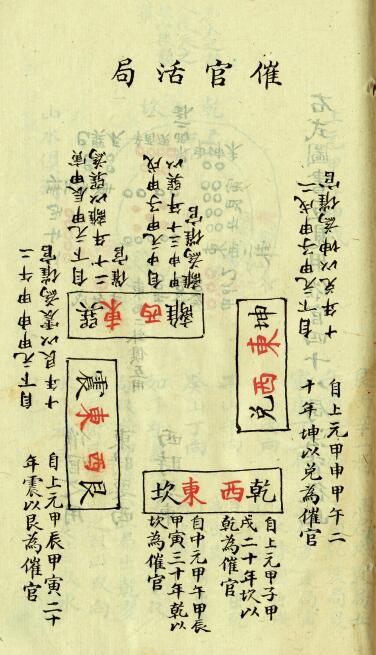 催官活局
自下元甲子甲戌二
十年兌以坤為催官
坤東西兌
自上元甲申甲午二
十年坤以兌為催官
自中元甲子甲戌
甲申三十年巽以
離為催官
自下元甲辰甲寅
二十年離以巽為
催官
離西東巽
自下元甲申甲午二
十年艮以震為催官
震東西艮
自上元甲辰甲寅二十
年震以艮為催官
乾西東坎
自上元甲子甲
戌二十年坎以
乾為催官
自中元甲午甲辰
甲寅三十年乾以
坎為催官